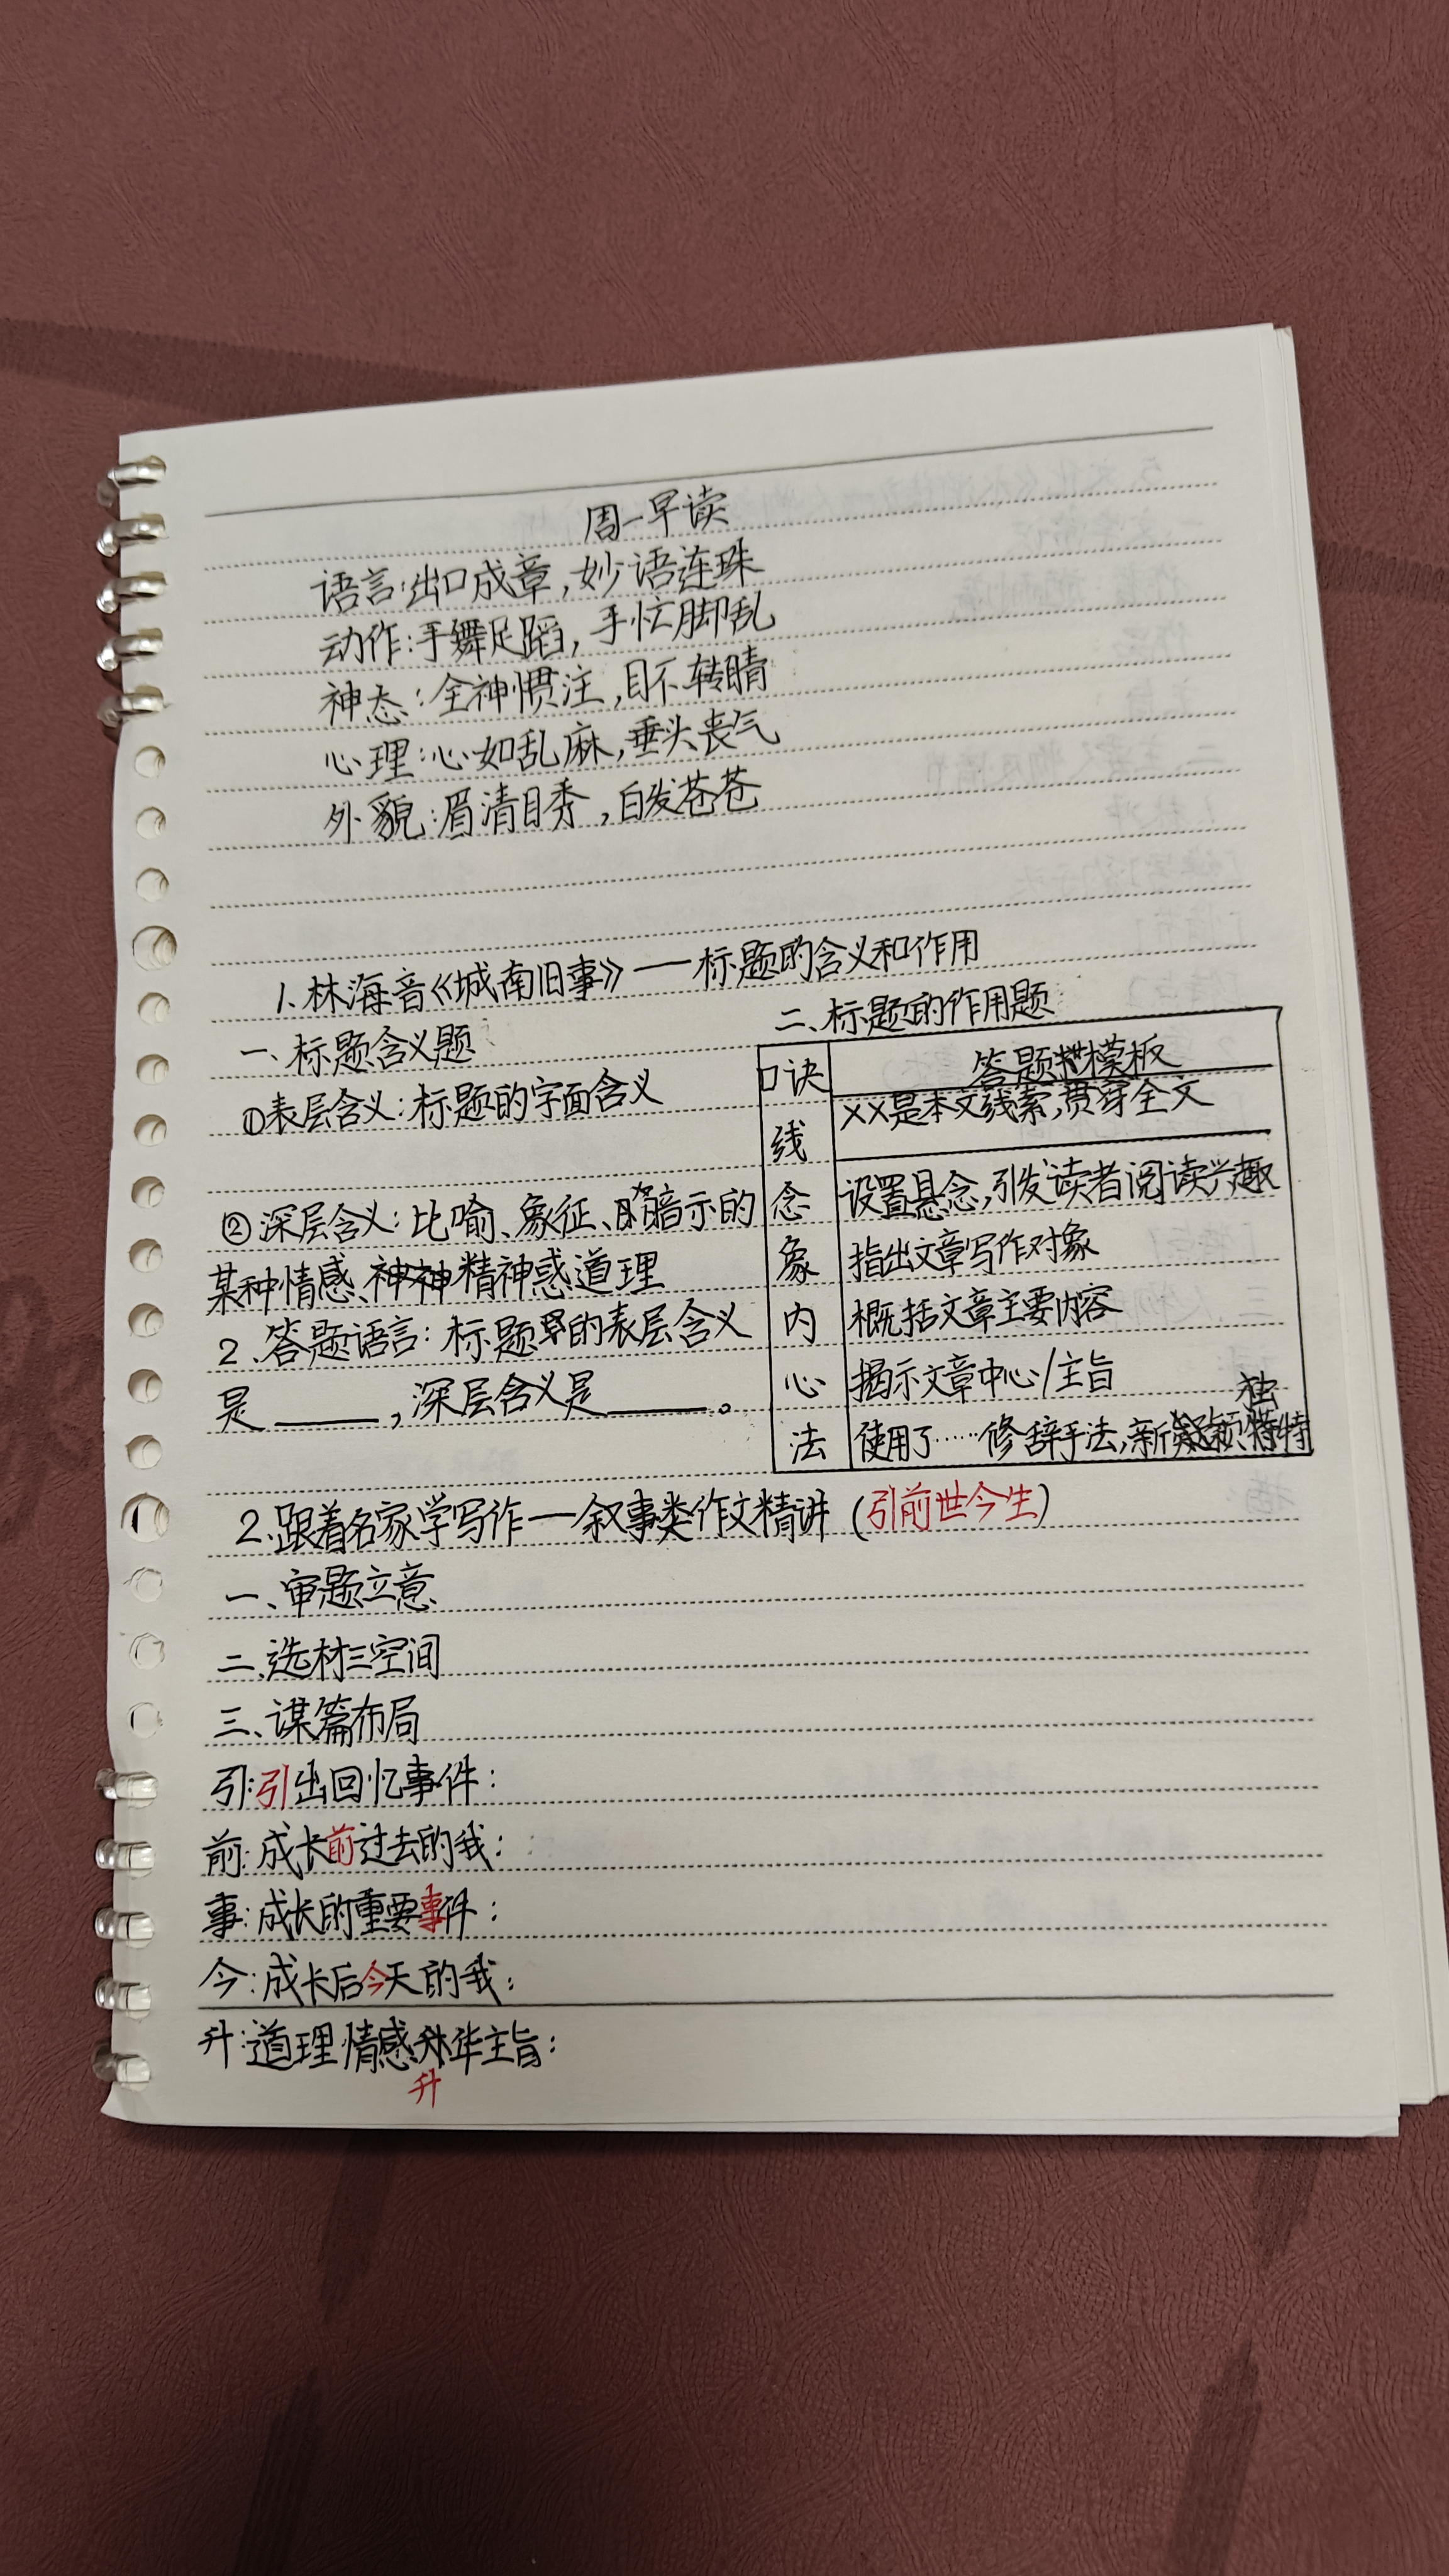 周一早读
语言:出口成章,妙语连珠
动作:手舞足蹈,手忙脚乱
神态:全神惯注,目不转睛
心理:心如乱麻,垂头丧气
外貌:眉清目秀,白发苍苍
1.林海音《城南旧事》——标题的含义和作用
一、标题含义题
①表层含义:标题的字面含义
②深层含义:比喻、象征、暗示的
某种情感、精神惑道理
2.答题语言:标题的表层含义
是____,深层含义是____。
二、标题的作用题
口诀 答题模板
线 XX是本文线索,贯穿全文
念 设置悬念,引发读者阅读兴趣
象 指出文章写作对象
内 概括文章主要内容
心 揭示文章中心/主旨
法 使用了……修辞手法,新颖独特
2.跟着名家学写作—叙事类作文精讲(引前世今生)
一、审题立意
二、选材三空间
三、谋篇布局
引:引出回忆事件:
前:成长前过去的我:
事:成长的重要事件:
今:成长后今天的我:
升:道理情感升华主旨: